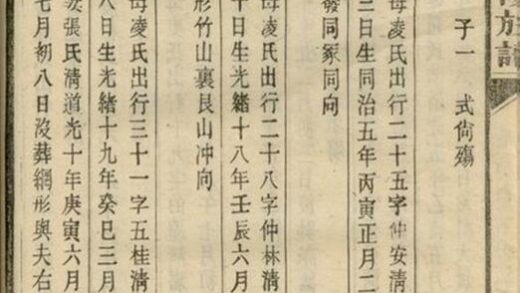 族譜
子一 式尙殤
母凌氏出行二十五字仲安淸
三日生同治五年丙寅正月二
發同冢同向
母凌氏出行二十八字仲林淸
十日生光緖十八年壬辰六月
形竹山裏艮山冲向
母凌氏出行三十一字五桂淸
八日生光緖十九年癸巳三月
娶張氏淸道光十年庚寅六月
七月初八日沒葬網形與夫右